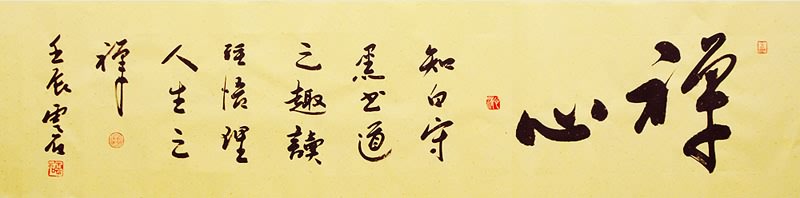 禪心
知白守
黑書道
之趣讀
經悟理
人生之
禪
壬辰雲石